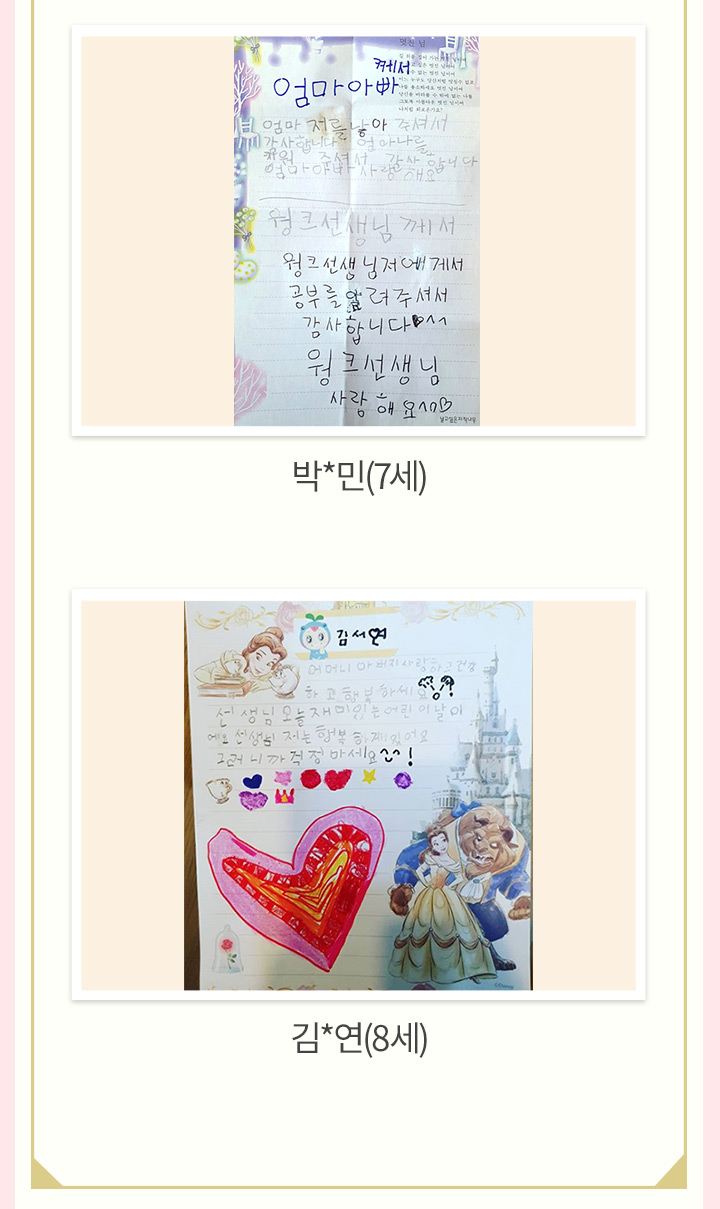 멋진 님
께서
엄마아빠
엄마 저를 낳아 주셔서
감사합니다 엄마나를
키워 주셔서 감사합니다
엄마아빠사랑해요
윙크선생님께서
윙크선생님저에게서
공부를 알려주셔서
감사합니다♥^^
윙크선생님
사랑해요^^♡
날고싶은자작나무
박*민(7세)
김서연
어머니 아버지사랑하고건강
하고행복하세요
선생님오늘재미있는어린이날이
에요 선생님 저는행복하게있어요
그러니까걱정마세요^^!
©Disney
김*연(8세)